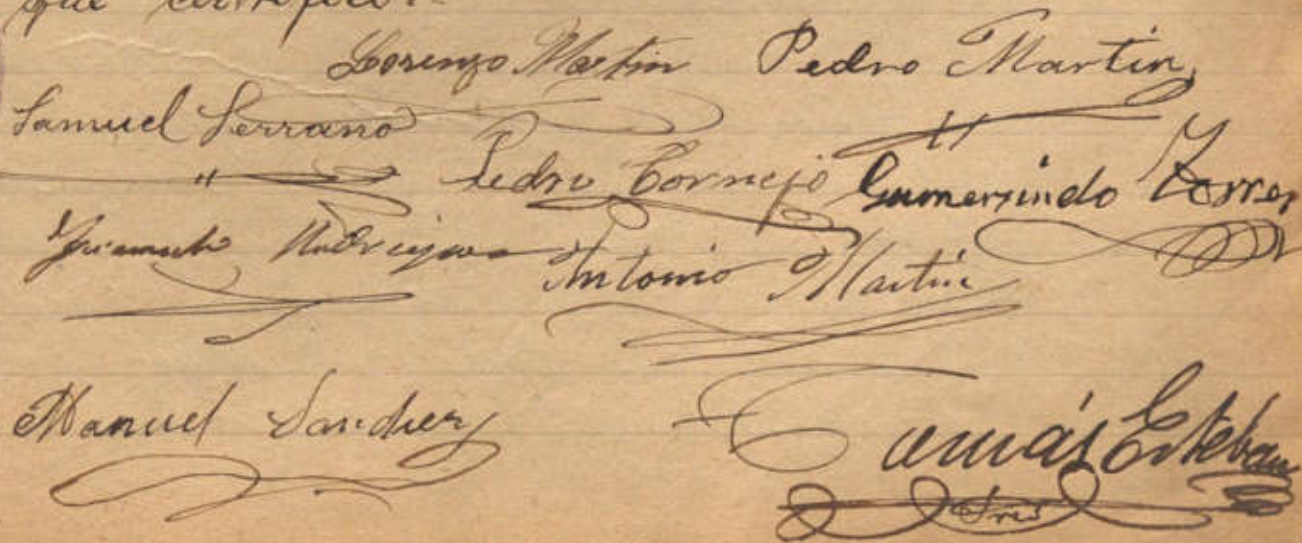 que certifico.-
Lorenzo Martin Pedro Martin
Samuel Serrano
Pedro Cornejo Gumersindo Torres
Rodriguez Antonio Martin
Manuel Sanchez Tomás Esteban
Srio